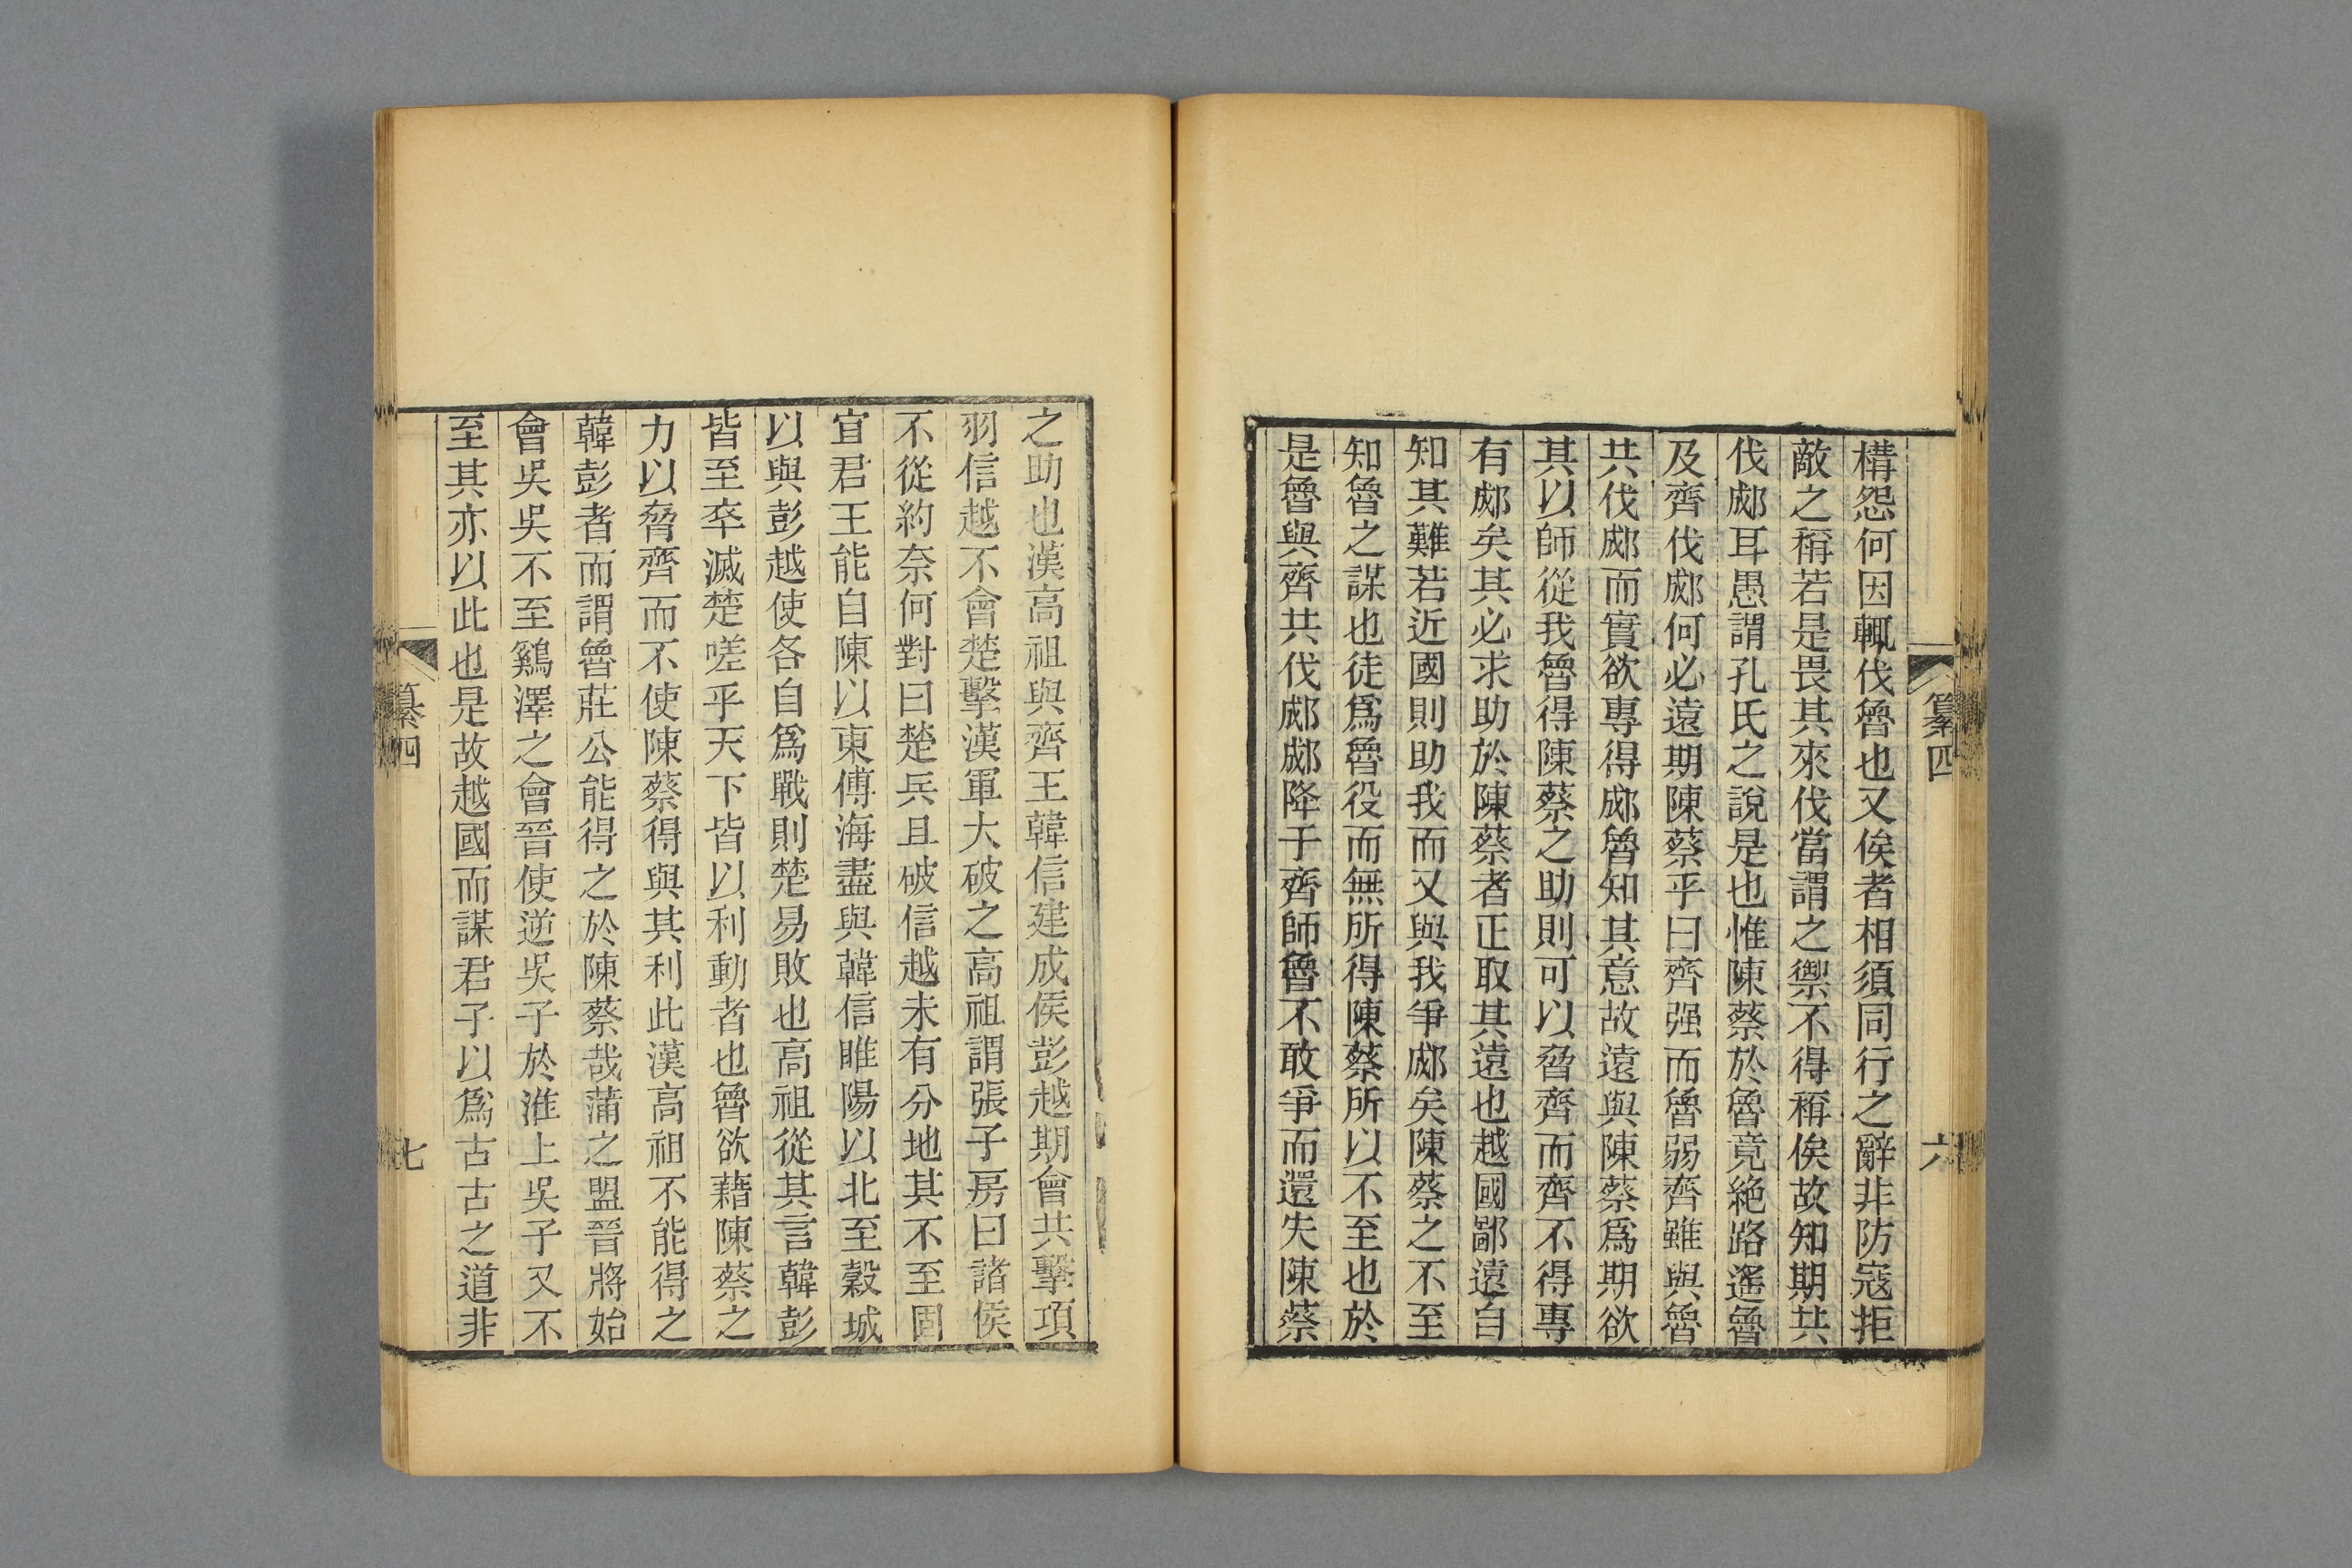 纂四
六
構怨何因輒伐魯也又俟者相須同行之辭非防寇拒
敵之稱若是畏其來伐當謂之禦不得稱俟故知期共
伐郕耳愚謂孔氏之說是也惟陳蔡於魯竟絶路遙魯
及齊伐郕何必遠期陳蔡乎曰齊强而魯弱齊雖與魯
共伐郕而實欲專得郕魯知其意故遠與陳蔡爲期欲
其以師從我魯得陳蔡之助則可以脅齊而齊不得專
有郕矣其必求助於陳蔡者正取其遠也越國鄙遠自
知其難若近國則助我而又與我爭郕矣陳蔡之不至
知魯之謀也徒爲魯役而無所得陳蔡所以不至也於
是魯與齊共伐郕郕降于齊師魯不敢爭而還失陳蔡
之助也漢高祖與齊王韓信建成侯彭越期會共擊項
羽信越不會楚擊漢軍大破之高祖謂張子房曰諸侯
不從約奈何對曰楚兵且破信越未有分地其不至固
宜君王能自陳以東傅海盡與韓信睢陽以北至穀城
以與彭越使各自爲戰則楚易敗也高祖從其言韓彭
皆至卒滅楚嗟乎天下皆以利動者也魯欲藉陳蔡之
力以脅齊而不使陳蔡得與其利此漢高祖不能得之
韓彭者而謂魯莊公能得之於陳蔡哉蒲之盟晉將始
會吳吳不至鷄澤之會晉使逆吳子於淮上吳子又不
至其亦以此也是故越國而謀君子以爲古古之道非
纂四
七